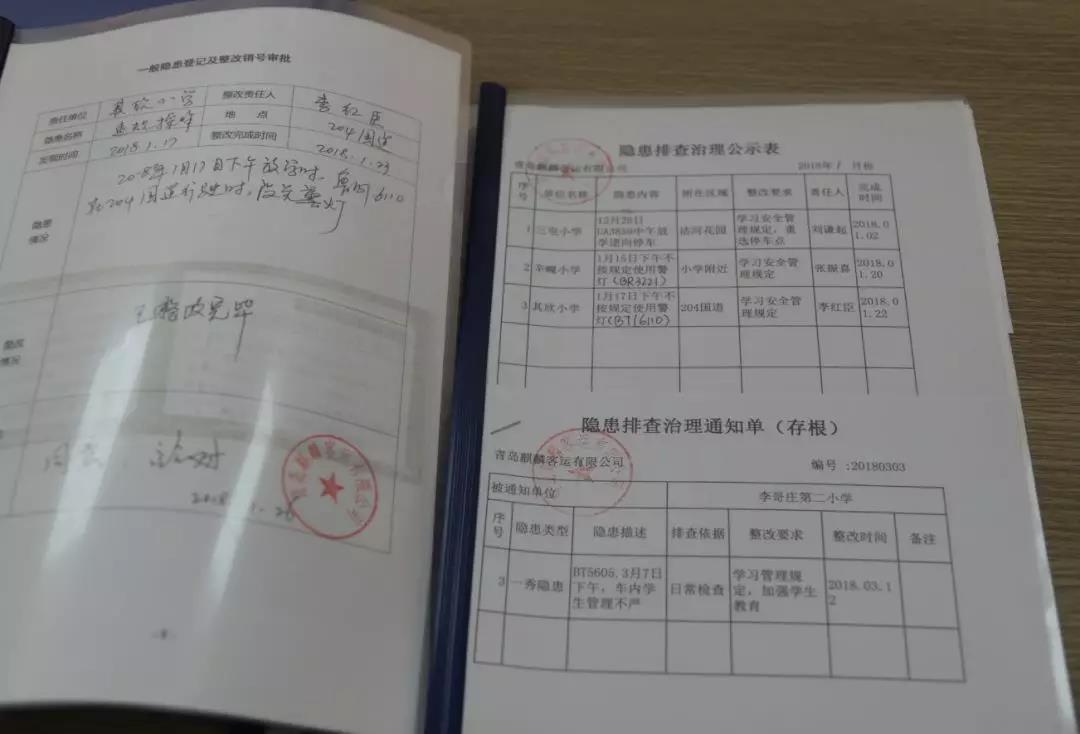 一般隐患登记及整改销号审批
责任单位 其欣小学 整改责任人 李红臣
隐患名称 地点 204国道
发现时间 2018.1.17 整改完成时间 2018.1.23
隐患
情况
2018年1月17日下午放学时,鲁 6110
在204国道行驶时,没关警灯
整改
情况
已整改完毕
2018.1.26
隐患排查治理公示表
青岛麒麟客运有限公司 2018年1月份
序号 单位名称 隐患内容 所在区域 整改要求 责任人 完成时间
1 三屯小学 12月28日UA3859中午放学逆向停车 沽河花园 学习安全管理规定,重选停车点 刘谦起 2018.01.02
2 辛疃小学 1月15日下午不按规定使用警灯(BR3221) 小学附近 学习安全管理规定 张振喜 2018.01.20
3 其欣小学 1月17日下午不按规定使用警灯(BT6110) 204国道 学习安全管理规定 李红臣 2018.01.22
隐患排查治理通知单(存根)
青岛麒麟客运有限公司 编号:20180303
被通知单位 李哥庄第二小学
序号 隐患类型 隐患描述 排查依据 整改要求 整改时间 备注
3 一秀隐患 BT5605.3月7日下午,车内学生管理不严 日常检查 学习管理规定,加强学生教育 2018.03.12